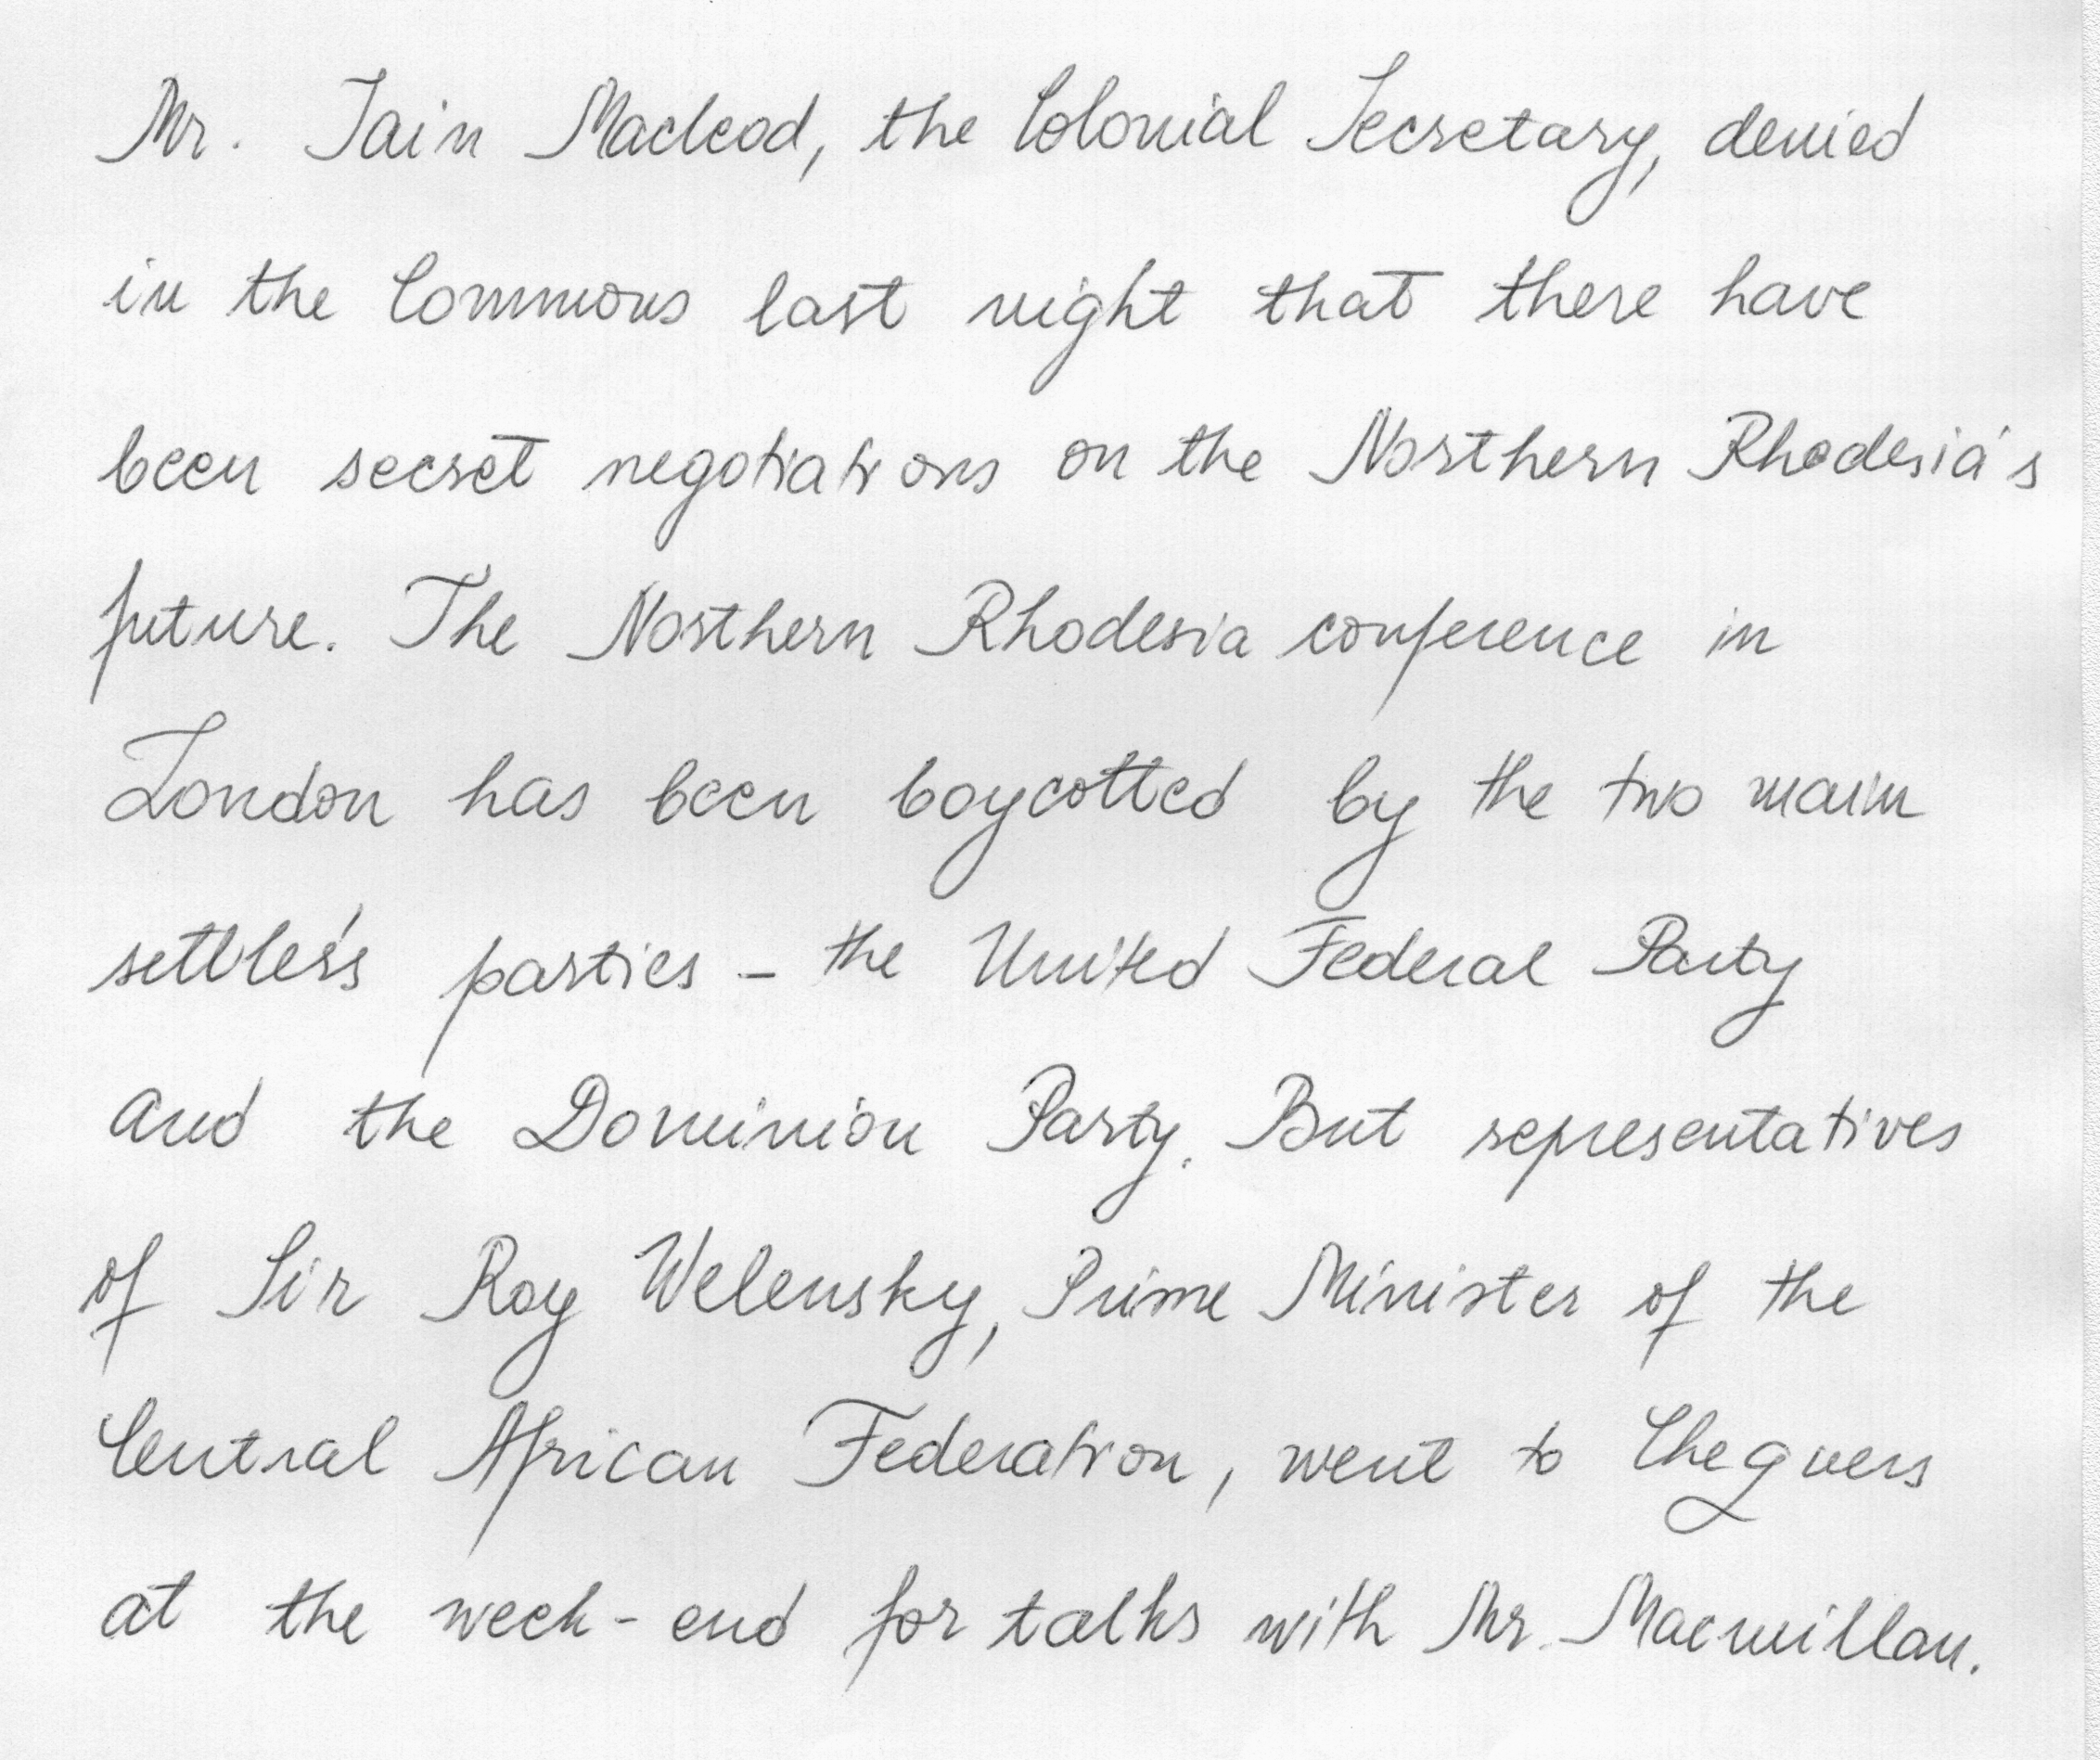 Mr. Iain Macleod, the Colonial Secretary, denied
in the Commons last night that there have
been secret negotiations on the Northern Rhodesia's
future. The Northern Rhodesia conference in
London has been boycotted by the two main
settler's parties - the United Federal Party
and the Dominion Party. But representatives
of Sir Roy Welensky, Prime Minister of the
Central African Federation, went to Chequers
at the week-end for talks with Mr. Macmillan.